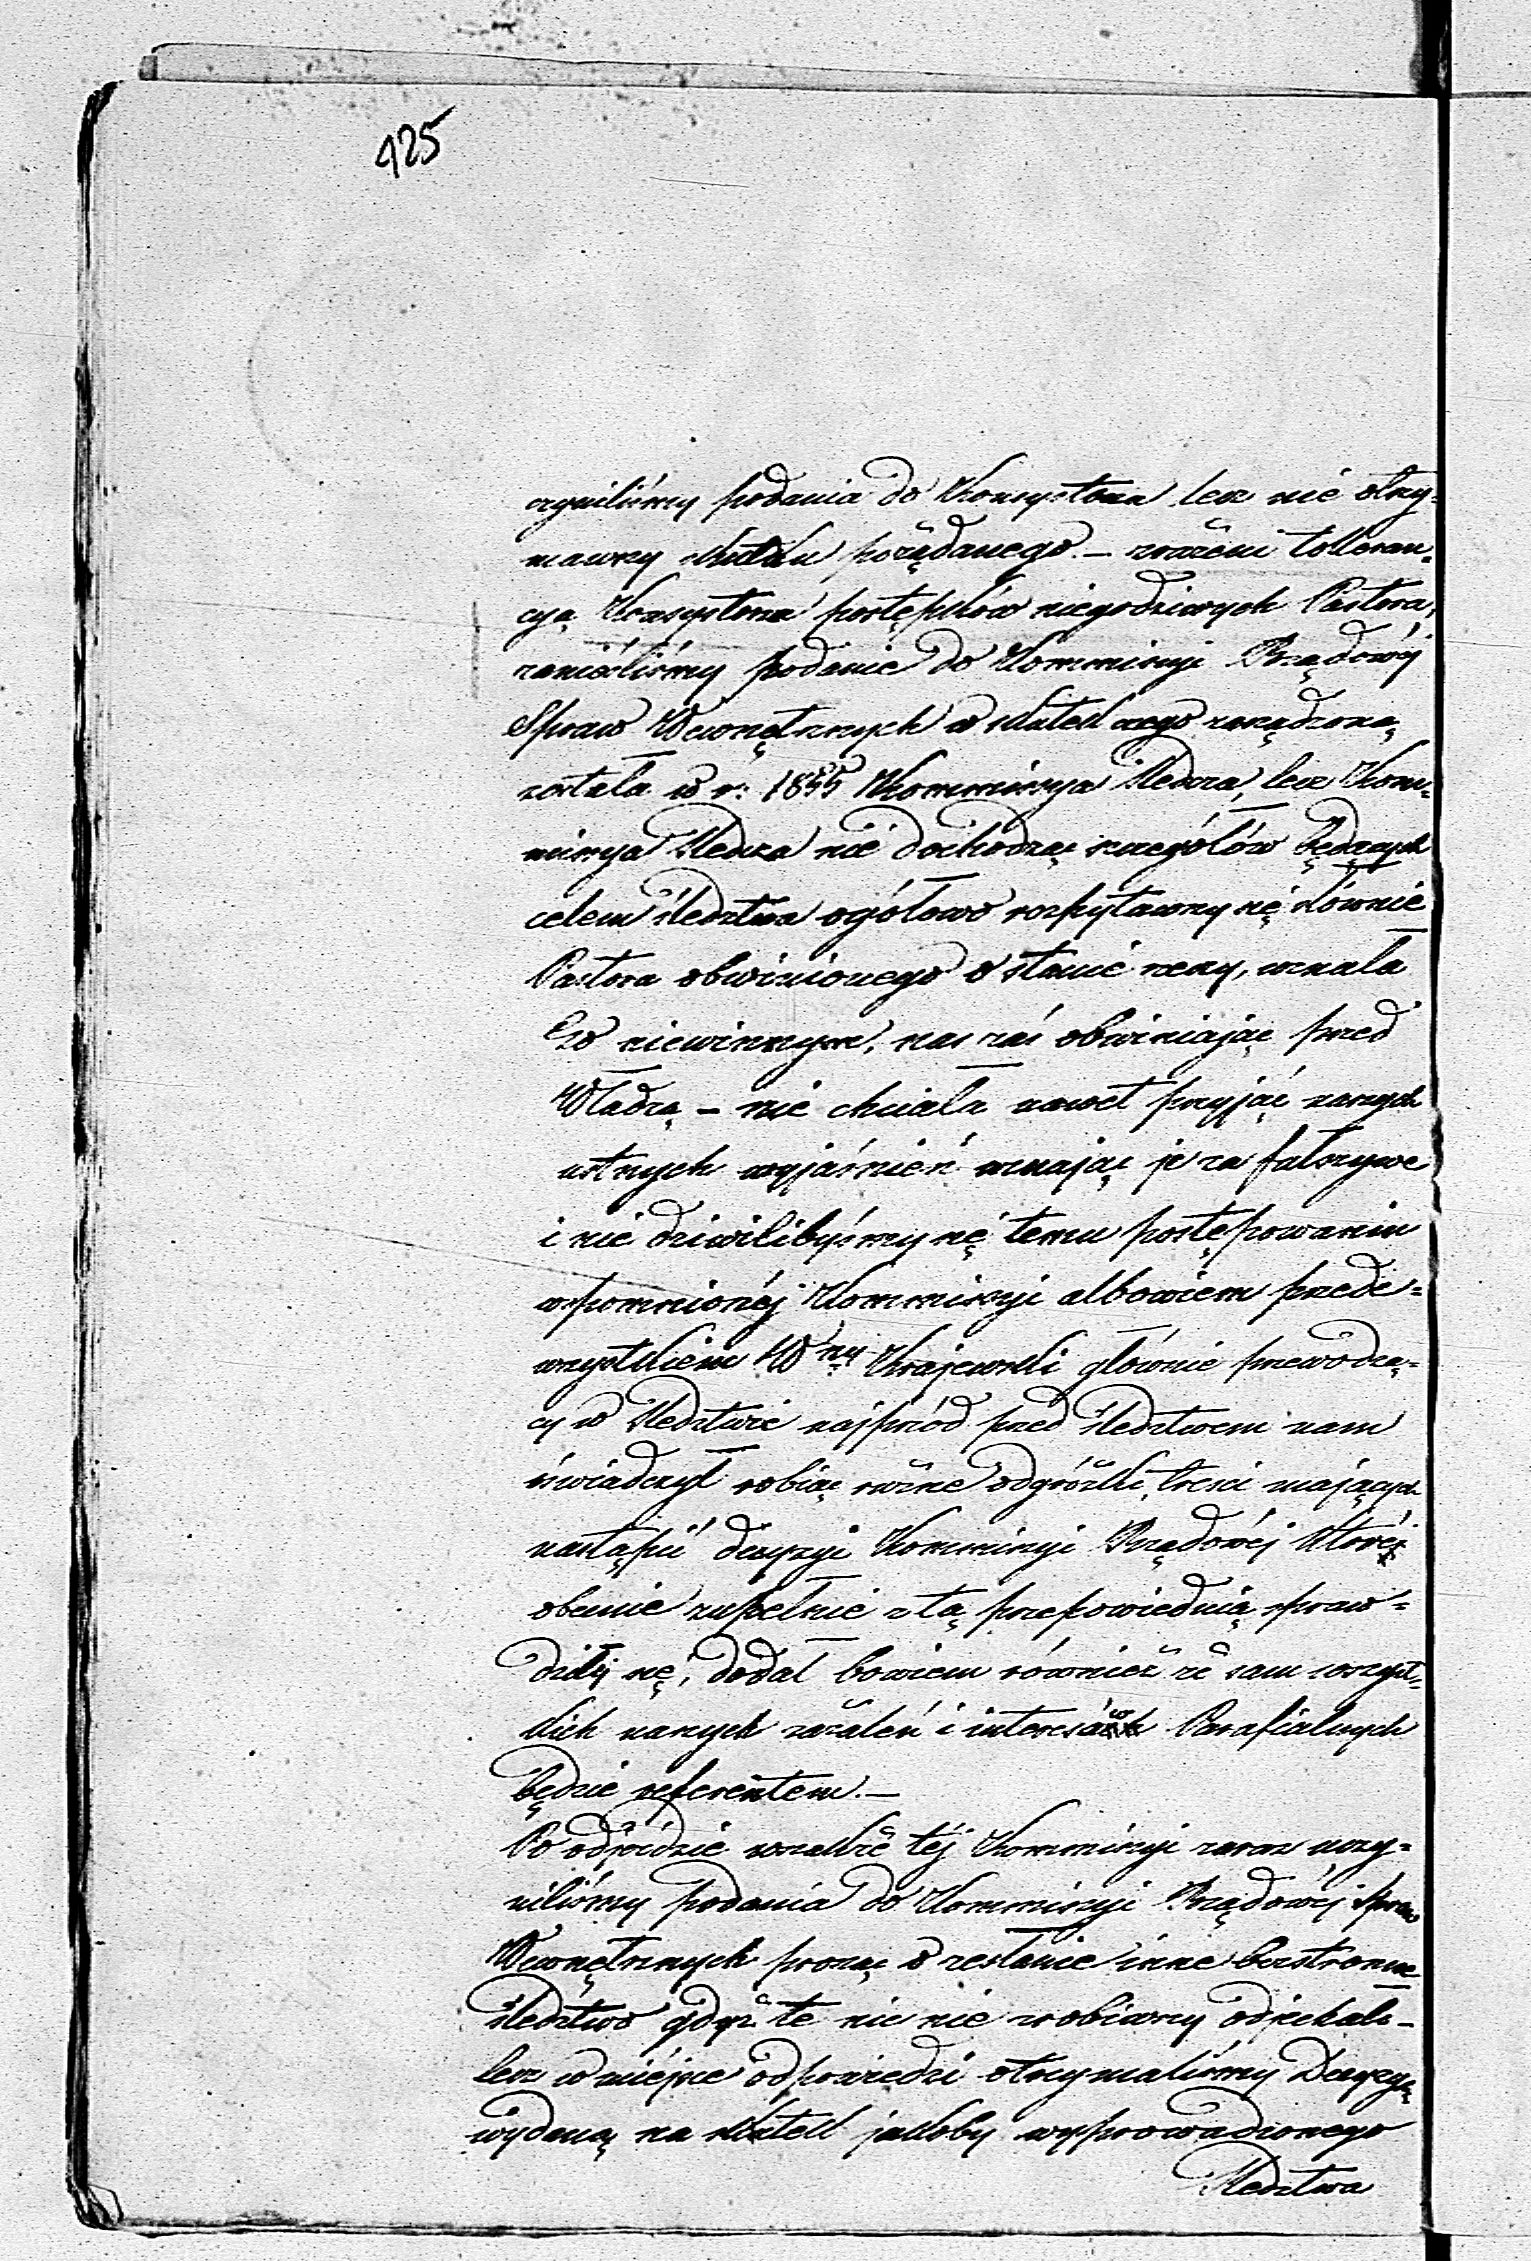 425
czyniliśmy podania do Konsystorza lecz nie otrzy=
mawszy skutku pożądanego. – zrażeni tolleran=
cyą Konsystorza postępków niegodziwych Pastora,
zanieśliśmy podanie do Kommissyi Rządowéj
Spraw Wewnętrznych w skutek czego zarządzoną
została w r: 1855 Kommissya Śledcza, lecz Kom=
missya Śledcza nie dochodząc szczegółów będących
celem śledztwa ogółowo rozpytawszy się słownie
Pastora obwinionego o stanie rzeczy, uznała
Go niewinnym, nas zaś obwiniając przed
Władzą – nie chciała nawet przyjąć naszych
ustnych wyjaśnień uznając je za fałszywe
i nie dziwilibyśmy się temu postępowaniu
wspomnionéj Kommissyi albowiem przede=
wszystkiem Wny Krajewski głównie przewodzą=
cy w Śledztwie najprzód przed śledztwem nam
świadczył robiąc różne odgróżki, treści mających
nastąpić decyzyi Kommissyi Rządowéj któréj
obecnie zupełnie z tą przepowiednią spraw=
dziły się, dodał bowiem również że sam wszyst=
kich naszych zażaleń i interesów Parafialnych
będzie referentem. –
Po odjeździe wszakże téj Kommissyi zaraz uczy=
niliśmy podania do Kommissyi Rządowéj Spraw
Wewnętrznych prosząc o zesłanie inne bezstronne
śledztwo gdyż te nic nie zrobiwszy odjechało –
lecz w miéjsce odpowiedzi otrzymaliśmy Decyzyą
wydaną na skutek jakoby wyprowadzonego
Śledztwa